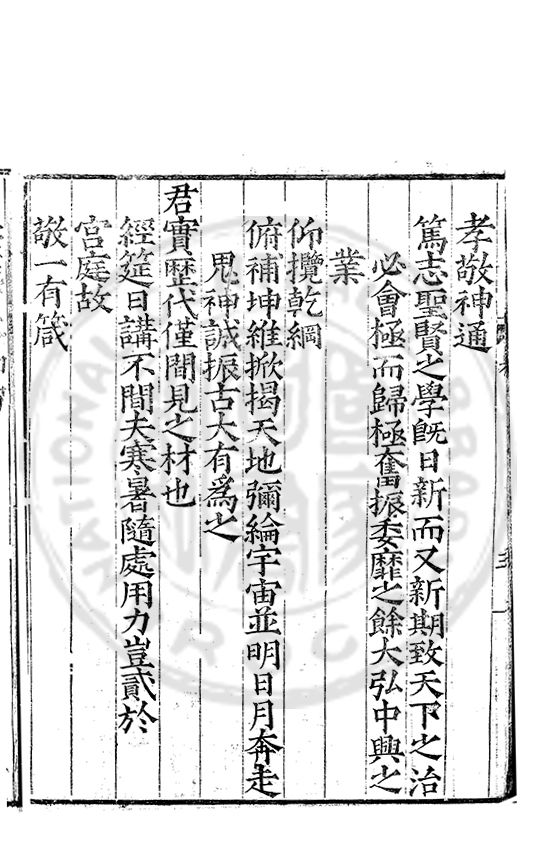 孝敬神通
篤志聖賢之學旣日新而又新期致天下之治
必會極而歸極奮振委靡之餘大弘中興之
業
仰攬乾綱
俯補坤維掀揭天地彌綸宇宙並明日月奔走
鬼神誠振古大有爲之
君實歷代僅間見之材也
經筵日講不間夫寒暑隨處用力豈貳於
宫庭故
敬一有箴